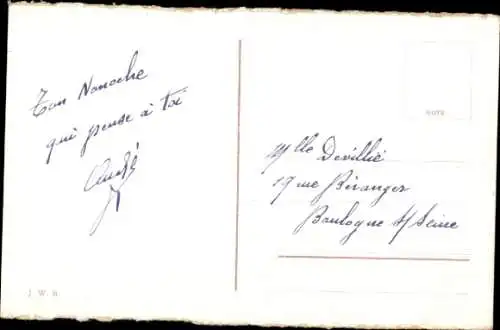 Ton Nanoche
qui pense à toi
André
Mlle Devillié
19 rue Béranger
Boulogne s/ Seine
J. W. B